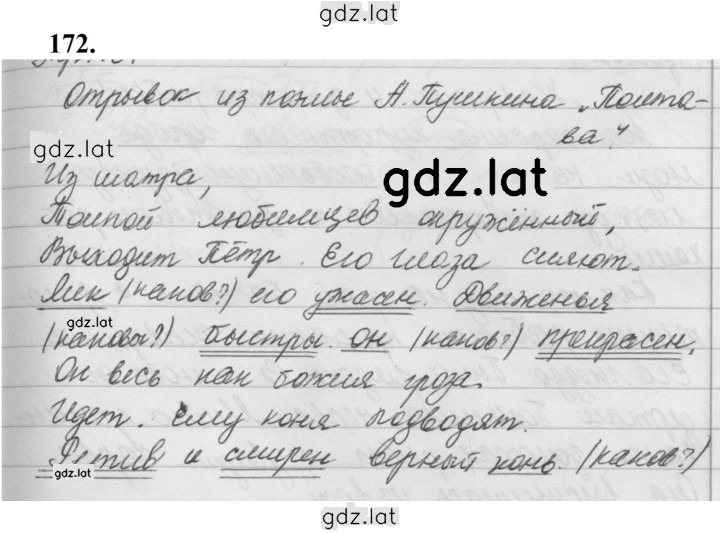 gdz.lat
172.
Отрывок из поэмы А.Пушкина „Полта-
ва".
gdz.lat
gdz.lat
Из шатра,
Толпой любимцев окружённый,
Выходит Пётр. Его глаза сияют.
Лик (каков?) его ужасен. Движенья
gdz.lat
(каковы?) быстры. Он (каков?) прекрасен.
Он весь как божия гроза.
Идет. ему коня подводят.
Ретив и смирен верный конь. (каков?)
gdz.lat
gdz.lat